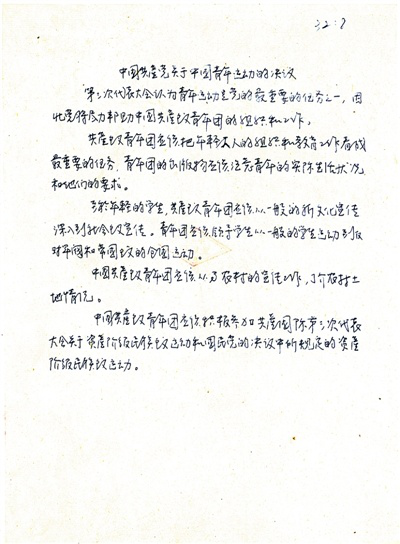 中国共产党关于中国青年运动的决议
第三次代表大会认为青年运动是党的最重要的任务之一，因
此党将尽力帮助中国共产主义青年团的组织和工作。
共产主义青年团应该把年轻工人的组织和教育工作看成
最重要的任务，青年团的出版物应该注意青年的实际生活状况
和他们的要求。
至于年轻的学生，共产主义青年团应该从一般的新文化宣传
深入到社会主义宣传。青年团应该领导学生从一般的学生运动到反
对军阀和帝国主义的合同运动。
中国共产主义青年团应该从事农村的宣传工作，了介农村土
地情况。
中国共产主义青年团应该积极参加共产国际第三次代表
大会关于资产阶级民族主义运动和国民党的决议中所规定的资产
阶级民族主义运动。